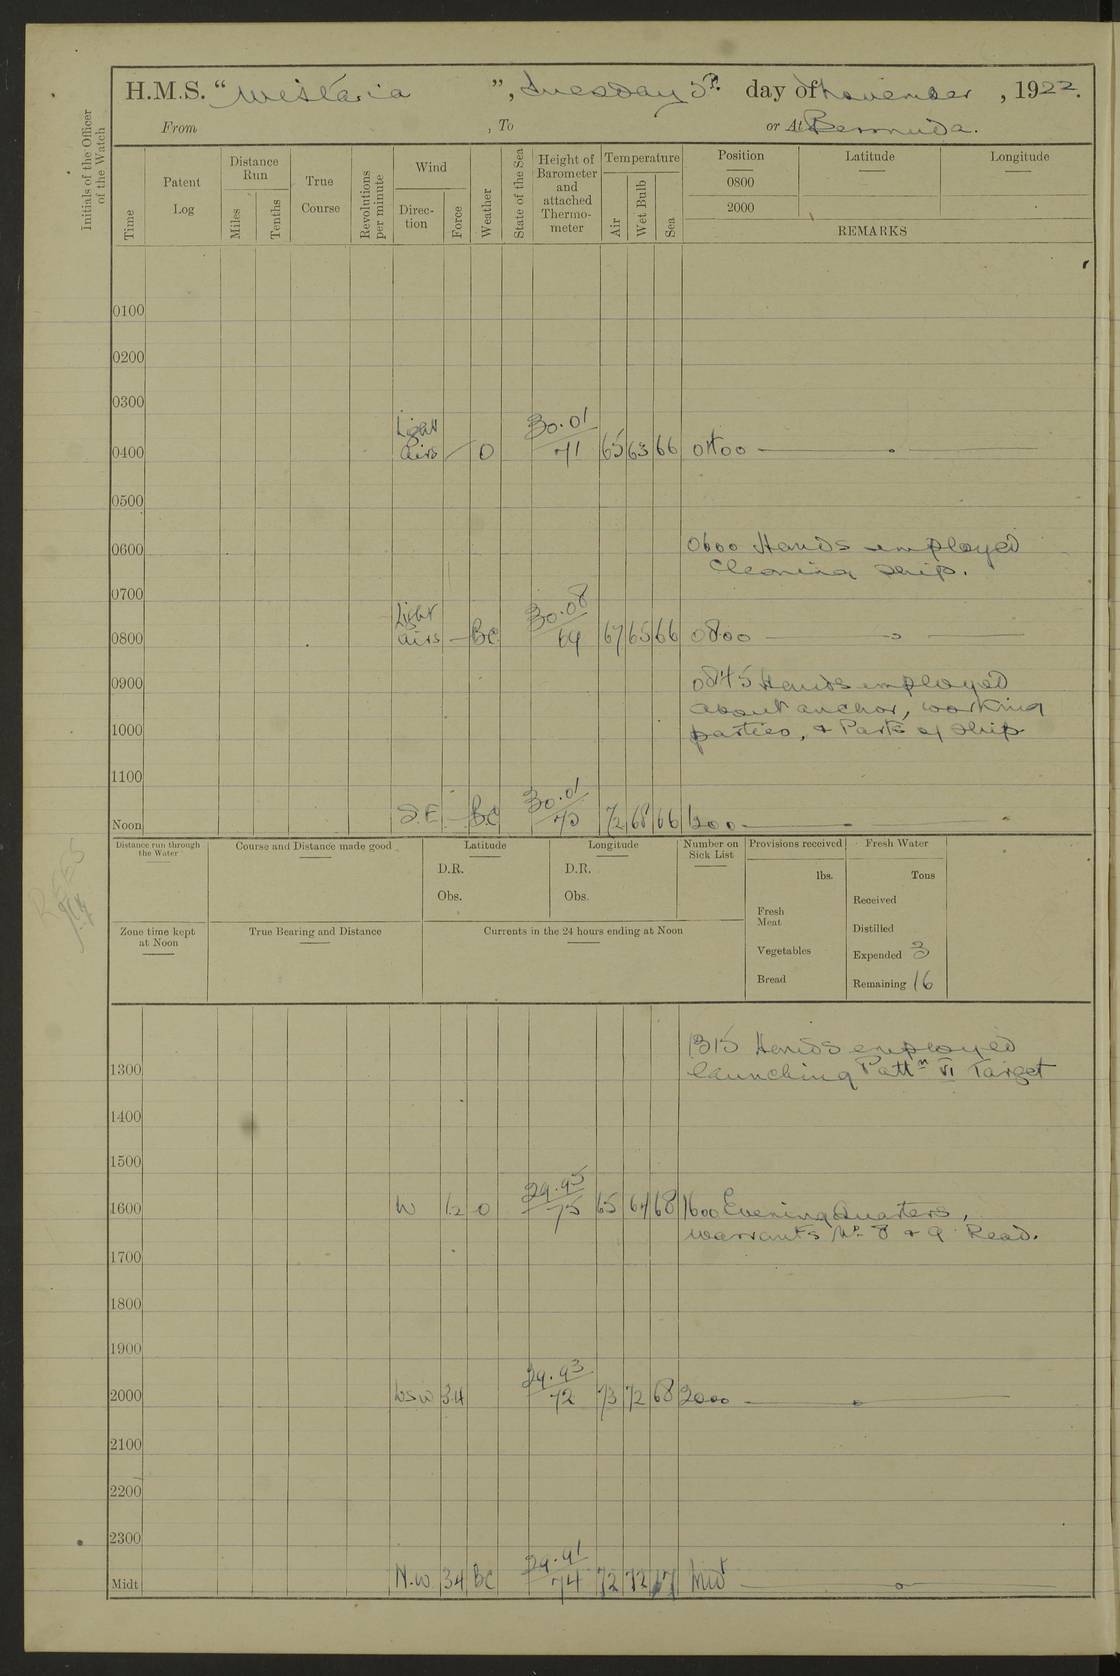 H.M.S. "Wistaria", Tuesday day of November, 1922.
From , To or At Bermuda.
Initials of the Officer of the Watch
Time
Patent Log
Distance Run
Miles
Tenths
True Course
Revolutions per minute
Wind
Direction
Force
Weather
State of the Sea
Height of Barometer and attached Thermometer
Temperature
Air
Wet Bulb
Sea
Position
0800
2000
Latitude
Longitude
REMARKS
0100
0200
0300
Light 30.01
0400 airs O 71 65 63 66 0400
0500
0600 0600 Hands employed
cleaning ship.
0700
Light 30.08
0800 airs — BC 64 67 65 66 0800
0900 0845 Hands employed
about anchor, working
1000 parties, & Parts of ship
1100
30.01
Noon S.E — BC 72 68 66 1200
Distance run through the Water
Course and Distance made good
Latitude
D.R.
Obs.
Longitude
D.R.
Obs.
Number on Sick List
Provisions received
lbs.
Fresh Meat
Vegetables
Bread
Fresh Water
Tons
Received
Distilled
Expended 3
Remaining 16
Zone time kept at Noon
True Bearing and Distance
Currents in the 24 hours ending at Noon
1315 Hands employed
1300 launching Pattn VI Target
1400
1500
29.95
1600 W 1.2 O 75 65 64 68 1600 Evening Quarters,
warrants No 8 & 9 Read.
1700
1800
1900
29.93
2000 WSW 34 72 73 72 68 2000
2100
2200
2300
29.91
Midt N.W 34 BC 74 72 72 Mid